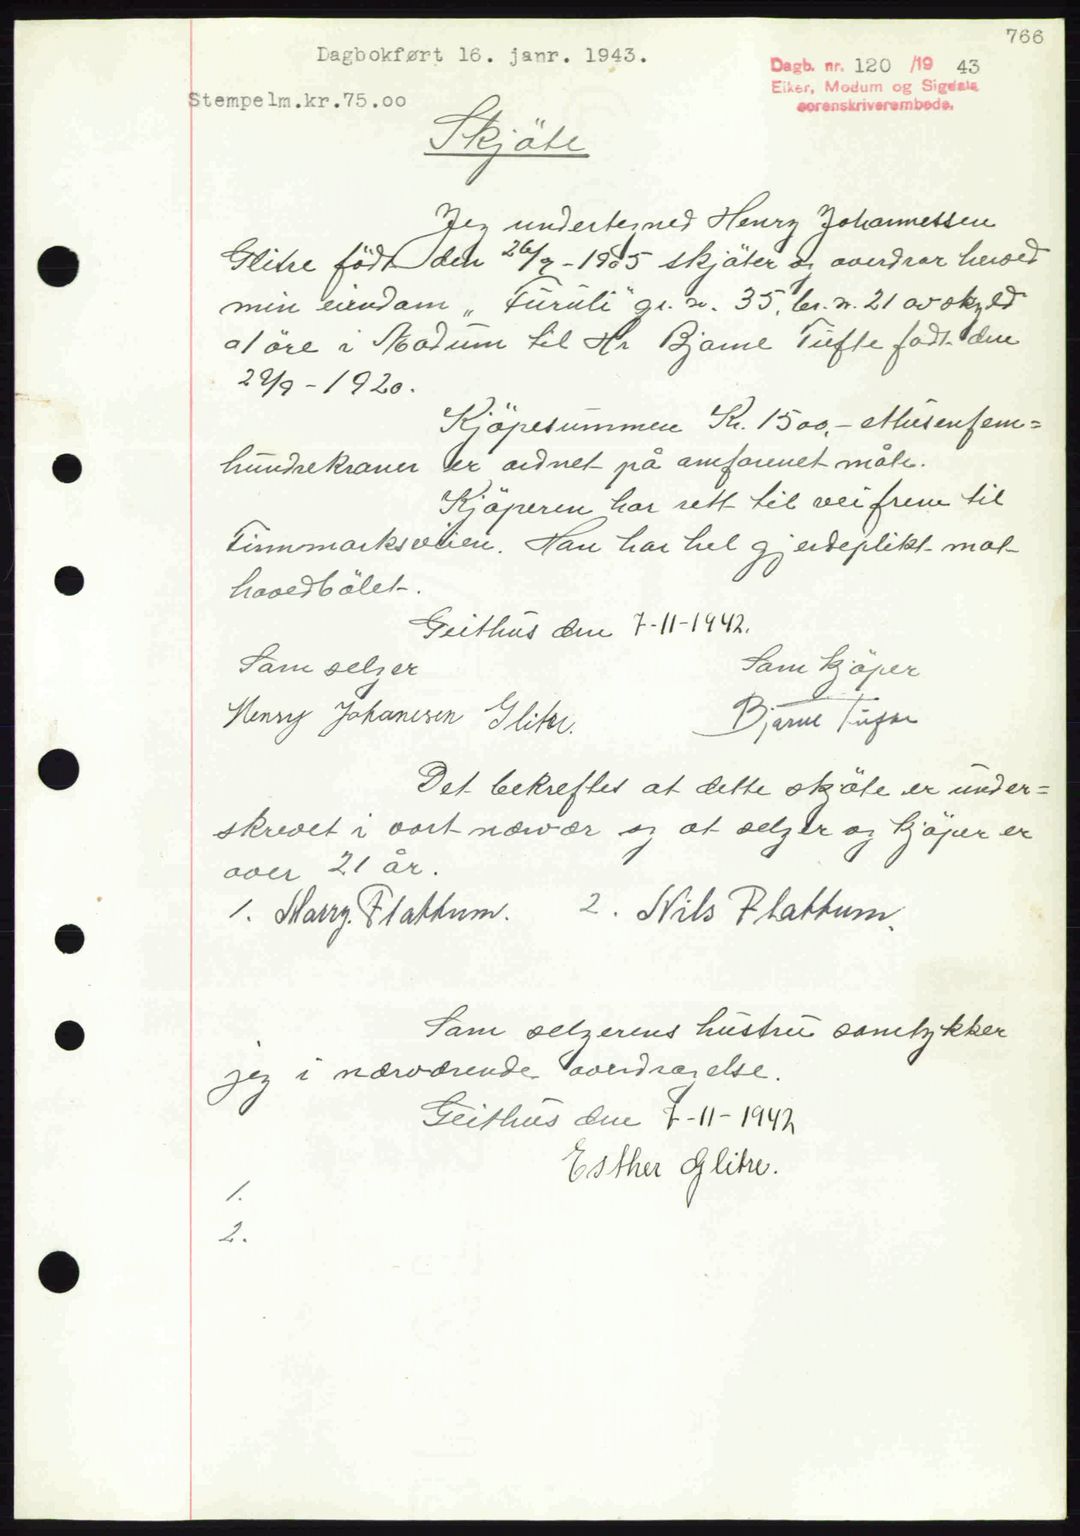 766
Dagbokført 16. janr. 1943.
Dagb. nr. 120 /19 43
Eiker, Modum og Sigdals
sorenskriverembede.
Stempelm.kr.75.00
Skjöte
Jeg undertegned Henry Johannessen
Glitre födt den 26/9-1905 skjöter og overdrar herved
min eiendom „Furuli" gr. n. 35, br. n. 21 av skyld
01 öre i Modum til Hr Bjarne Tufte födt den
29/9-1920.
Kjöpesummen Kr. 1500,- ettusenfem=
hundrekroner er ordnet på omforenet måte.
Kjöperen har rett til vei frem til
Finnmarksveien. Han har hel gjerdeplikt mot
hovedbölet.
Geithus den 7-11-1942.
Som selger
Som kjöper
Henry Johanesen Glitre.
Bjarne Tufte
Det bekreftes at dette skjöte er under=
skrevet i vort nærvær og at selger og kjöper er
over 21 år.
1. Marry. Flattum. 2. Nils Flattum.
Som selgerens hustru samtykker
jeg i nærværende overdragelse.
Geithus den 7-11-1942
Esther Glitre.
1.
2.